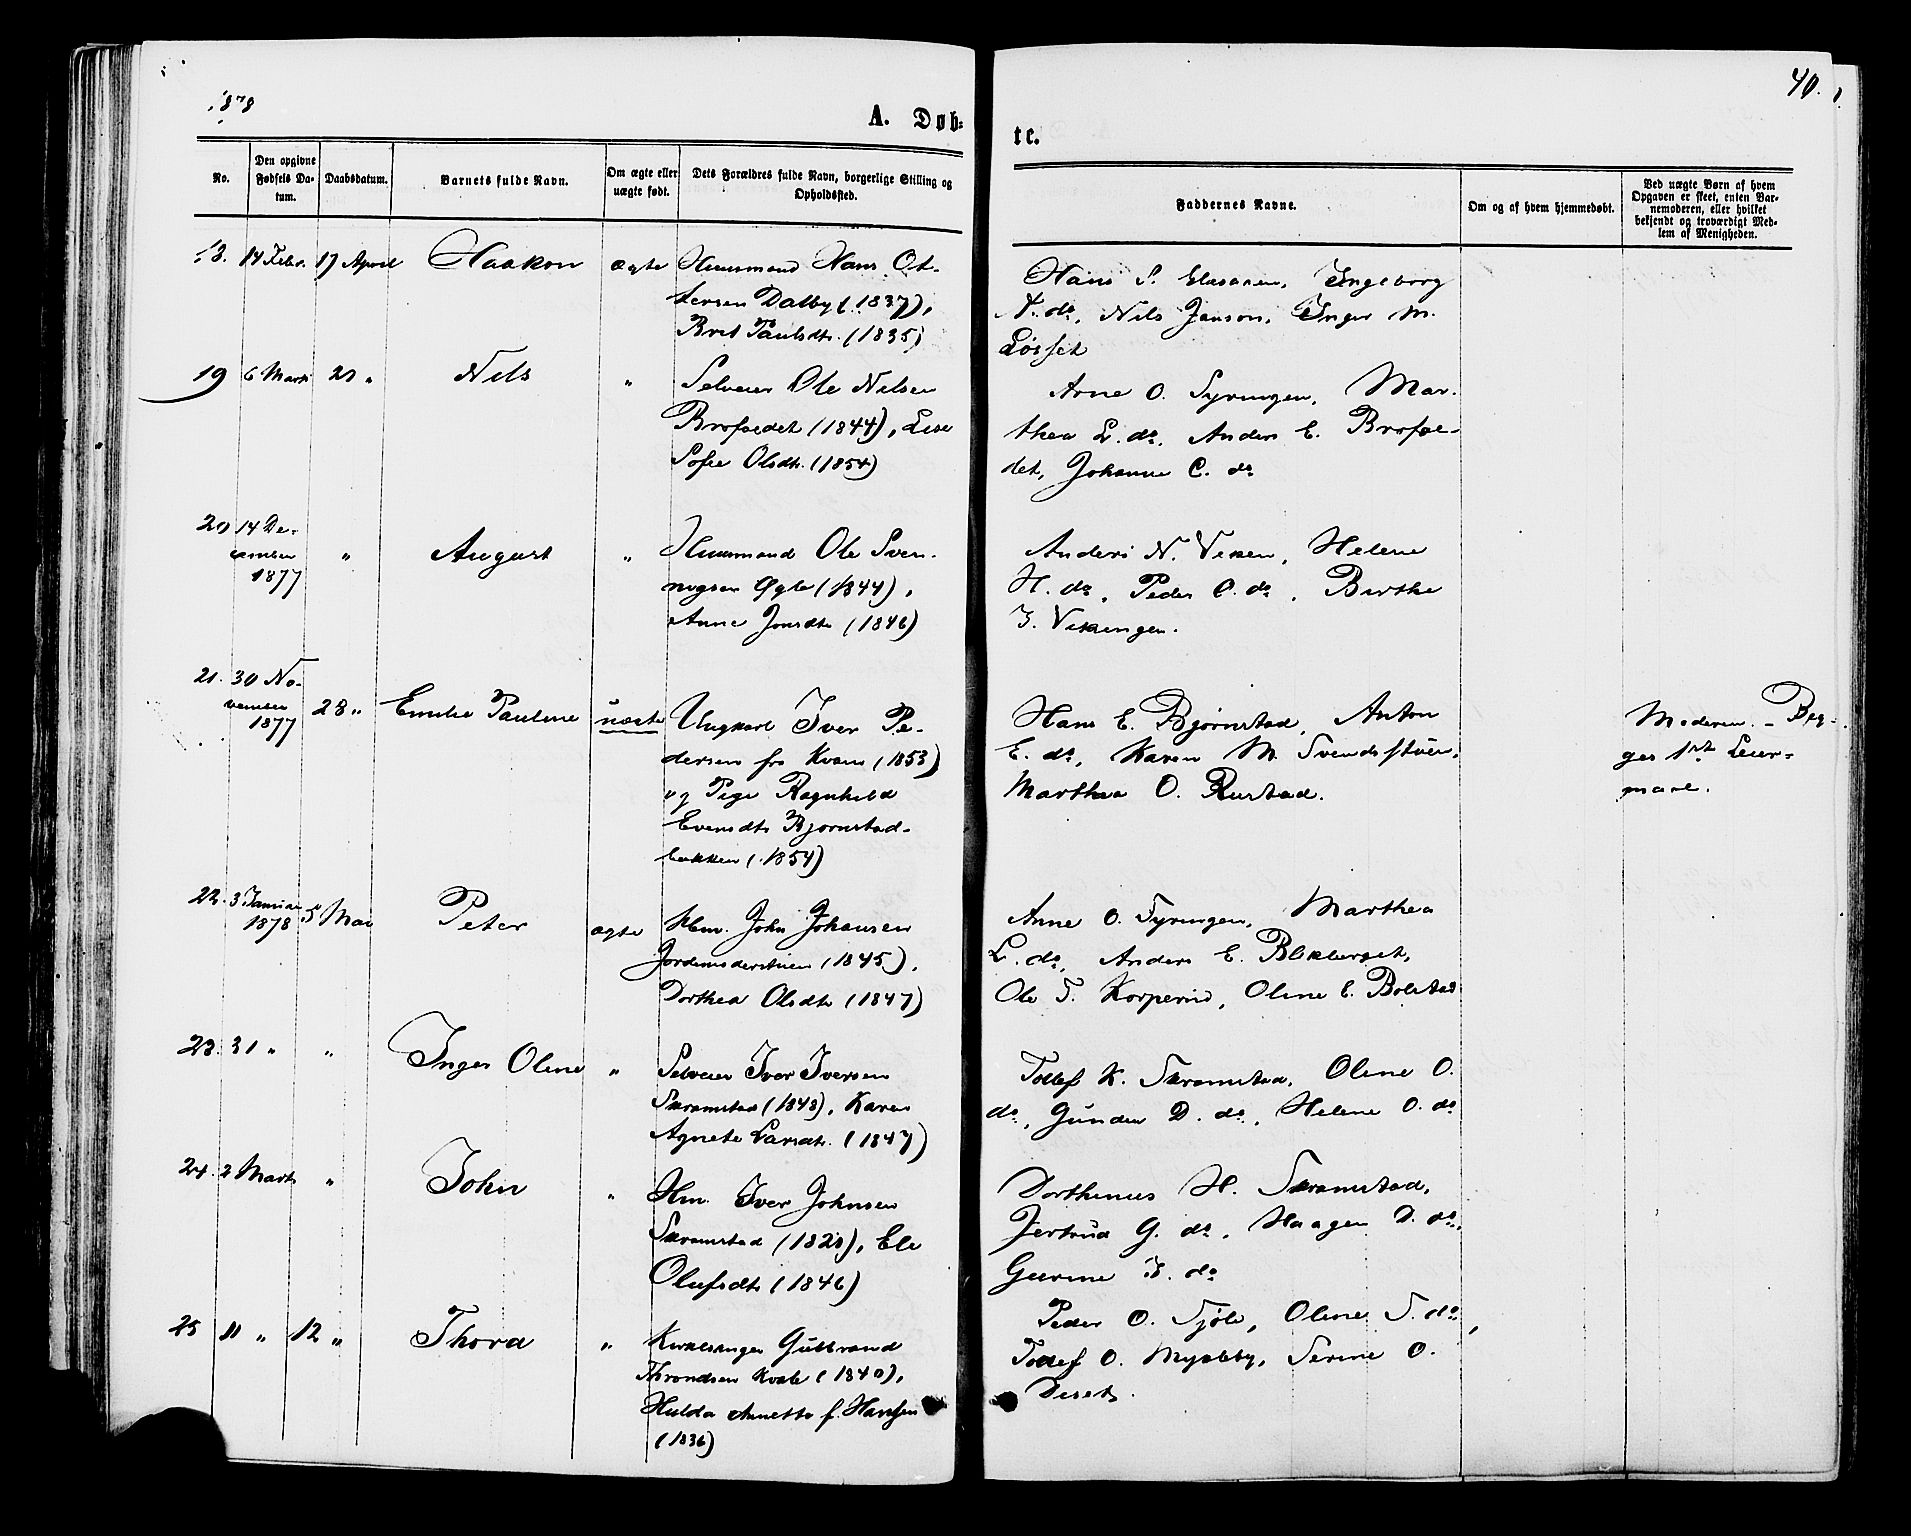 1878
40.
A. Døb-
te.
No.
Den opgivne Fødsels Da-tum.
Daabsdatum.
Barnets fulde Navn.
Om ægte eller uægte født.
Dets Forældres fulde Navn, borgerlige Stilling og Opholdssted.
Faddernes Navne.
Om og af hvem hjemmedøbt.
Ved uægte Børn af hvem
Opgaven er skeet, enten Bar-
nemoderen, eller hvilket
bekjendt og troværdigt Med-
lem af Menigheden.
18. 14 Febr. 17 April Haakon ægte Huusmand Hans Ot-
tersen Dalby (1837),
Brit Paulsdtr. (1835)
Hans S. Ingeborg
A. do, Nils Janson, Inger M.
Løsset
19 6 Marts 21 " Nils " Selveier Ole Nilsen
Brofoedet (1844), Lise
Sofie Olsdtr. (1854)
Arne O. Tyringen, Mar-
thea L. do, Anders E. Brofoe-
det, Johanne C. do
20 14 De-
cember
1877 " August " Huusmand Ole Sven-
nogsen Øgle (1844),
Anne Jonsdtr (1846)
Anders N. Viken, Helene
H. do, Peder O. do, Birthe
I. Vikingen.
21. 30 No-
vember
1877 28 " Emilie Pauline uægte Ungkarl Iver Pe-
dersen fra Kvam (1853)
og Pige Ragnhild
Evensdtr Bjørnstad-
bakken (1854)
Hans E. Bjørnstad, Anton
E. do, Karen M. Svendsstuen,
Marthea O. Rustad.
Moderen. - Beg-
ges 1st Leier-
maal.
22. 3 Januar
1878 5 Mai Peter ægte Hm. John Johansen
Jordemoderstuen (1845),
Dorthea Olsdtr (1847)
Arne O. Tyringen, Marthea
L. do, Anders E. Blikberget,
Ole T. Korperud, Oline E. Bolstad
23. 31 " " Inger Oline " Selveier Iver Iversen
Skramstad (1848), Karen
Agnete Larsdtr. (1847)
Tollef K. Skramstad, Oline O.
do, Gunder D. do, Helene O. do
24. 2 Marts " John " Hm. Iver Johnsen
Skramstad (1828), Eli
Olufsdtr (1846)
Dorthinus H. Skramstad,
Jertrud G. do, Haagen D. do,
Gurine I. do
25 11 " 12 " Thora " Kirkesanger Gulbrand
Throndsen Kvale (1840),
Hulda Annette f. Hansen
(1836)
Peder O. Tjøle, Oline T. do,
Tollef O. Myckleby, Serine O.
Deset.